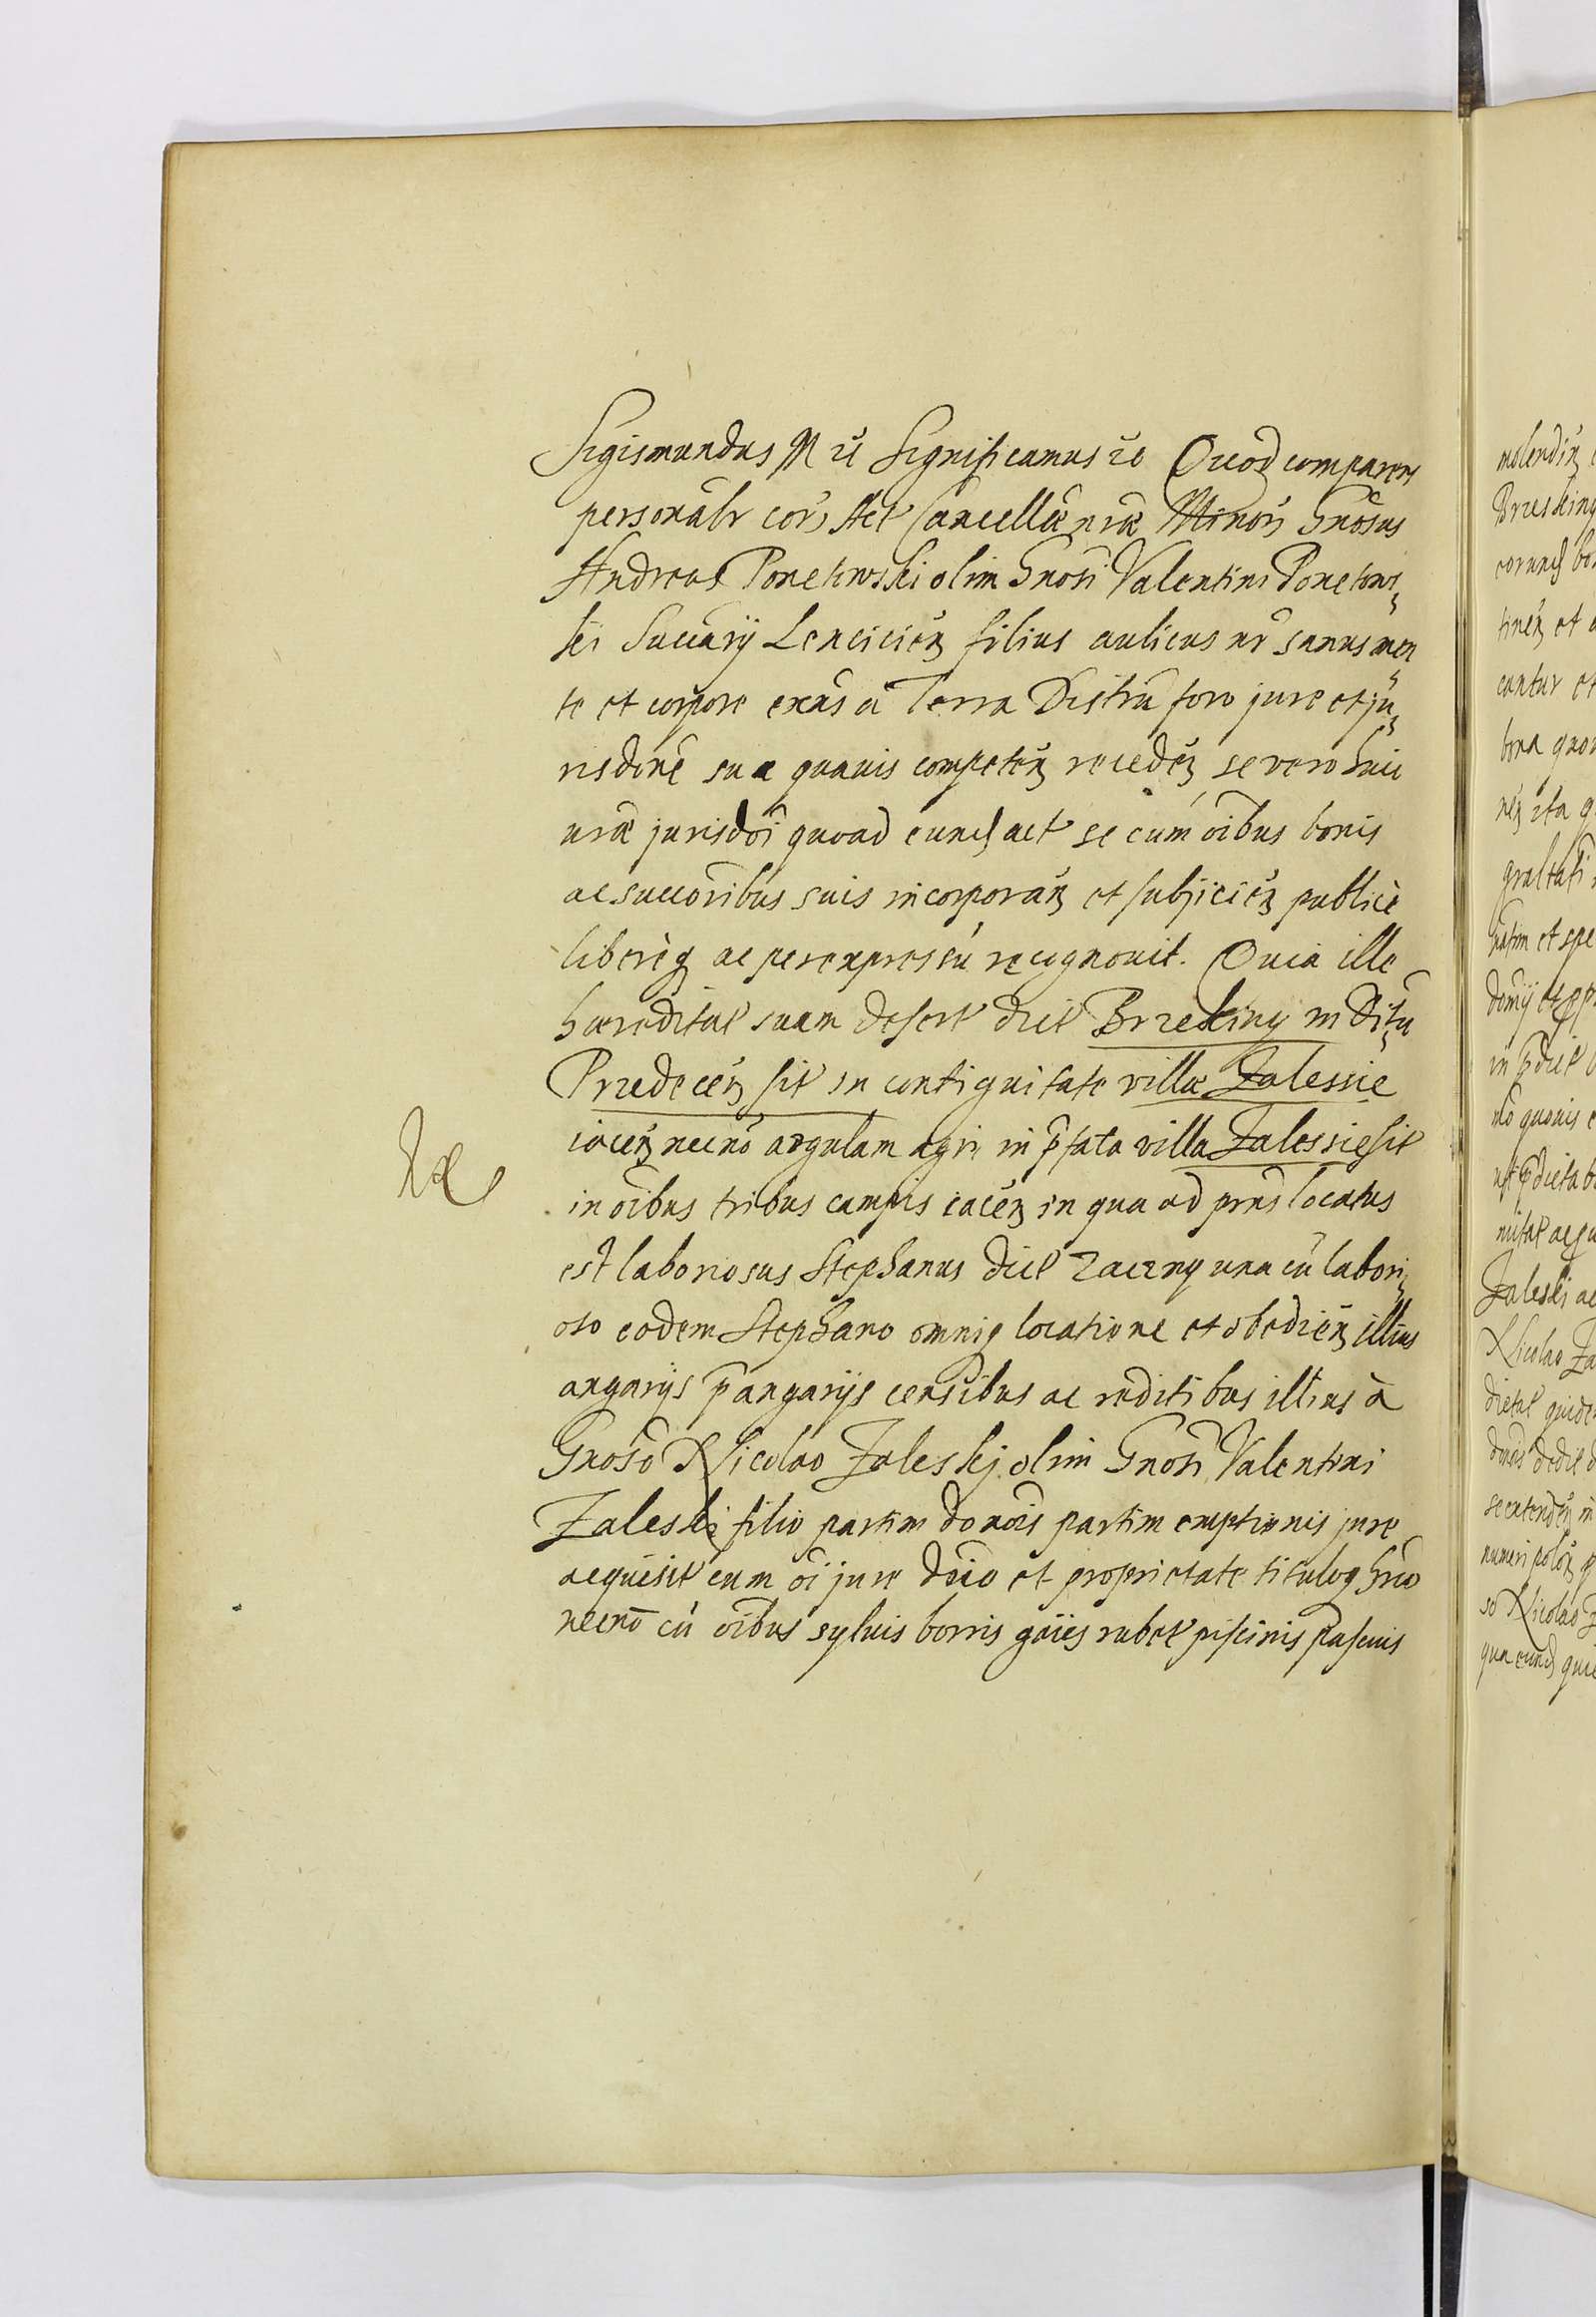 Sigismundus III etc Significamus etc Quod comparens
personalr corā Act Cancellæ nræ Minoris Gnosus
Andreas Ponetowski olim Gnosi Valentini Ponetows
kei Succarij Lencicień filius aulicus nr sanus men
te et corpore exns a Terra Distru foro jure et ju
risdone sua quauis competeń recedeń se vero huic
nræ jurisdoi quoad eund act se cum oibus bonis
ac succoribus suis incorporań et subjicień publicè
liberèq ac per expressū recognouit. Quia ille
hæreditat suam desert dict Brzekiny in Ditu
Przedeceń sit in contiguitate villæ Zalessie
iaceń necnō argulam agri in p̄fata villa Zalessie sit
in oibus tribus campis iaceń in qua ad prns locatus
est laboriosus Stephanus dict Zaczny una cū labori
oso eodem Stephano omniq locatione et obedień illius
angarijs p̄angarijs censibus ac reditibus illius à
Gnoso Nicolao Zaleskj olim Gnosi Valentini
Zaleski filio partim donois partim emptionis jure
acquisit cum oi jure dnio et proprietate tituloq hrio
necnō cū oibus syluis borris gaijs rubet piscinis pascuis
molendiń
Brzeskiny
eorund bo
tineń et
cantur et
bona quo
neń ita q
natim et spe
in p̄dict
mō quouis
ut p̄dicta b
nitat acqu
Zaleski ac
Nicolao Za
dictat quide
dones dedit d
se extendeń in
numeri poloń
so Nicolao Z
qua eund qui